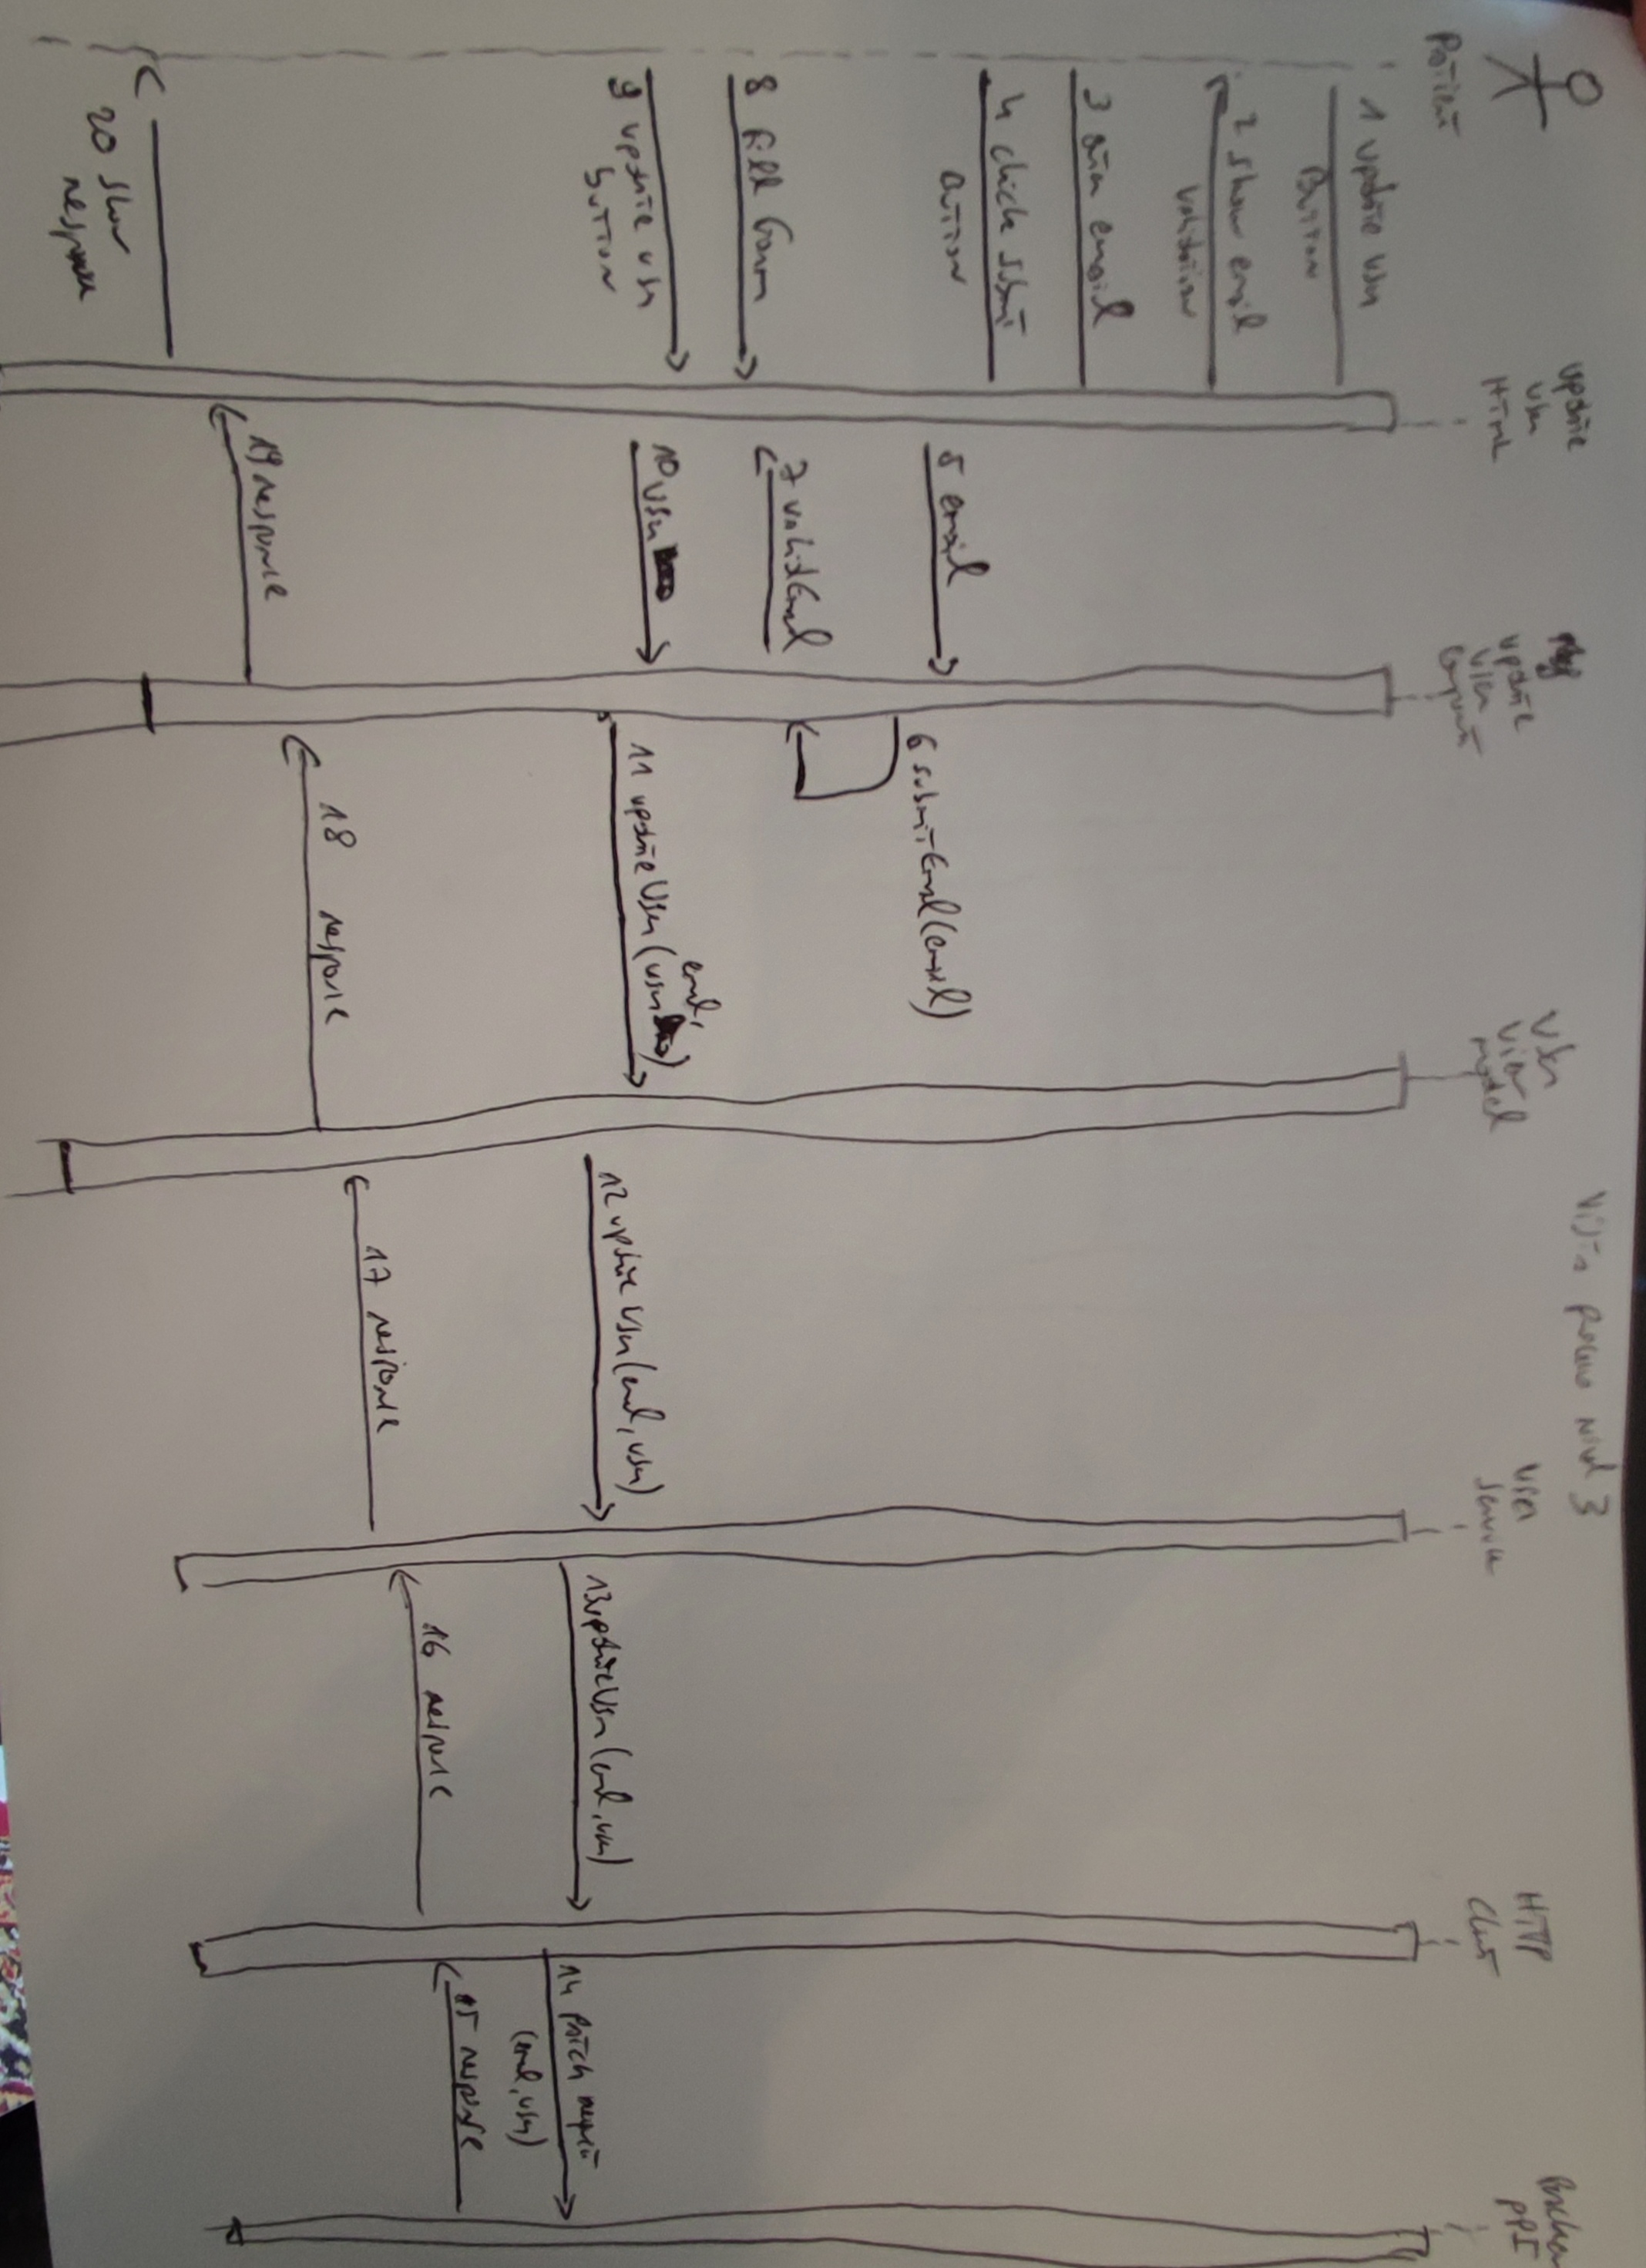 Vista Processo nível 3
Patient
Update
User
Html
Update
User
Component
User
View
Model
User
Service
HTTP
Client
Backend
API
1 update user
Button
2 show email
validation
3 email
4 click submit
button
5 email
6 submitEmail(email)
7 validEmail
8 fill form
9 update user
button
10 user
11 updateUser(user)
email,
12 update user (email, user)
13 updateUser (email, user)
14 Patch request
(email, user)
15 response
16 response
17 response
18 response
19 response
20 show
response